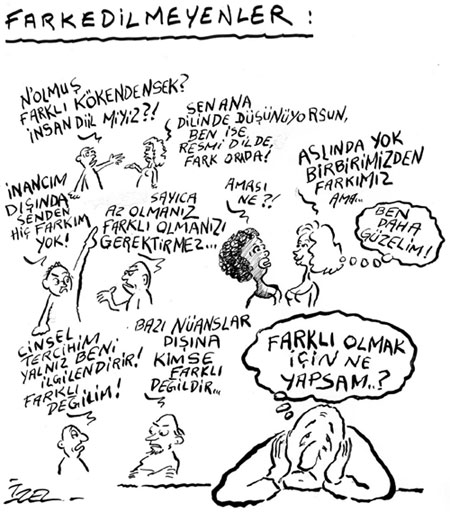 FARKEDİLMEYENLER :
N'OLMUŞ
FARKLI KÖKENDENSEK?
İNSAN DİİL MİYİZ?!
SEN ANA
DİLİNDE DÜŞÜNÜYORSUN,
BEN İSE
RESMİ DİLDE,
FARK ORADA!
İNANCIM
DIŞINDA
SENDEN
HİÇ FARKIM
YOK!
SAYICA
AZ OLMANIZ
FARKLI OLMANIZI
GEREKTİRMEZ...
AMASI
NE?!
ASLINDA YOK
BİRBİRİMİZDEN
FARKIMIZ
AMA..
BEN
DAHA
GÜZELİM!
CİNSEL
TERCİHİM
YALNIZ BENİ
İLGİLENDİRİR!
FARKLI
DEĞİLİM!
BAZI NÜANSLAR
DIŞINA
KİMSE
FARKLI
DEĞİLDİR...
FARKLI OLMAK
İÇİN NE
YAPSAM..?